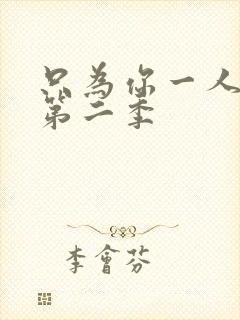 只為你一人
第二季
李會芬